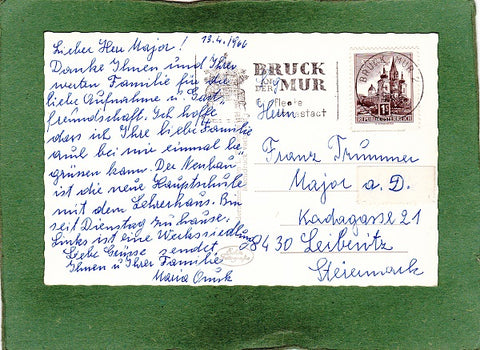 Lieber Herr Major! 13.4.1966
Danke Ihnen und Ihrer
werten Familie für die
liebe Aufnahme u. Gast-
freundschaft. Ich hoffe
dass ich Ihre liebe Familie
auch bei mir einmal be-
grüßen kann. Der Neubau
ist die neue Hauptschule
mit dem Lehrerhaus. Bin
seit Dienstag zu hause.
Links ist eine Werkssiedlung
Liebe Grüsse sendet
Ihnen u Ihrer Familie
Maria
BRUCK
AN DER MUR
BRUCK MUR
1S
REPUBLIK ÖSTERREICH
Herrn
Franz Trummer
Major a. D.
Kadagasse 21
8430 Leibnitz
Steiermark